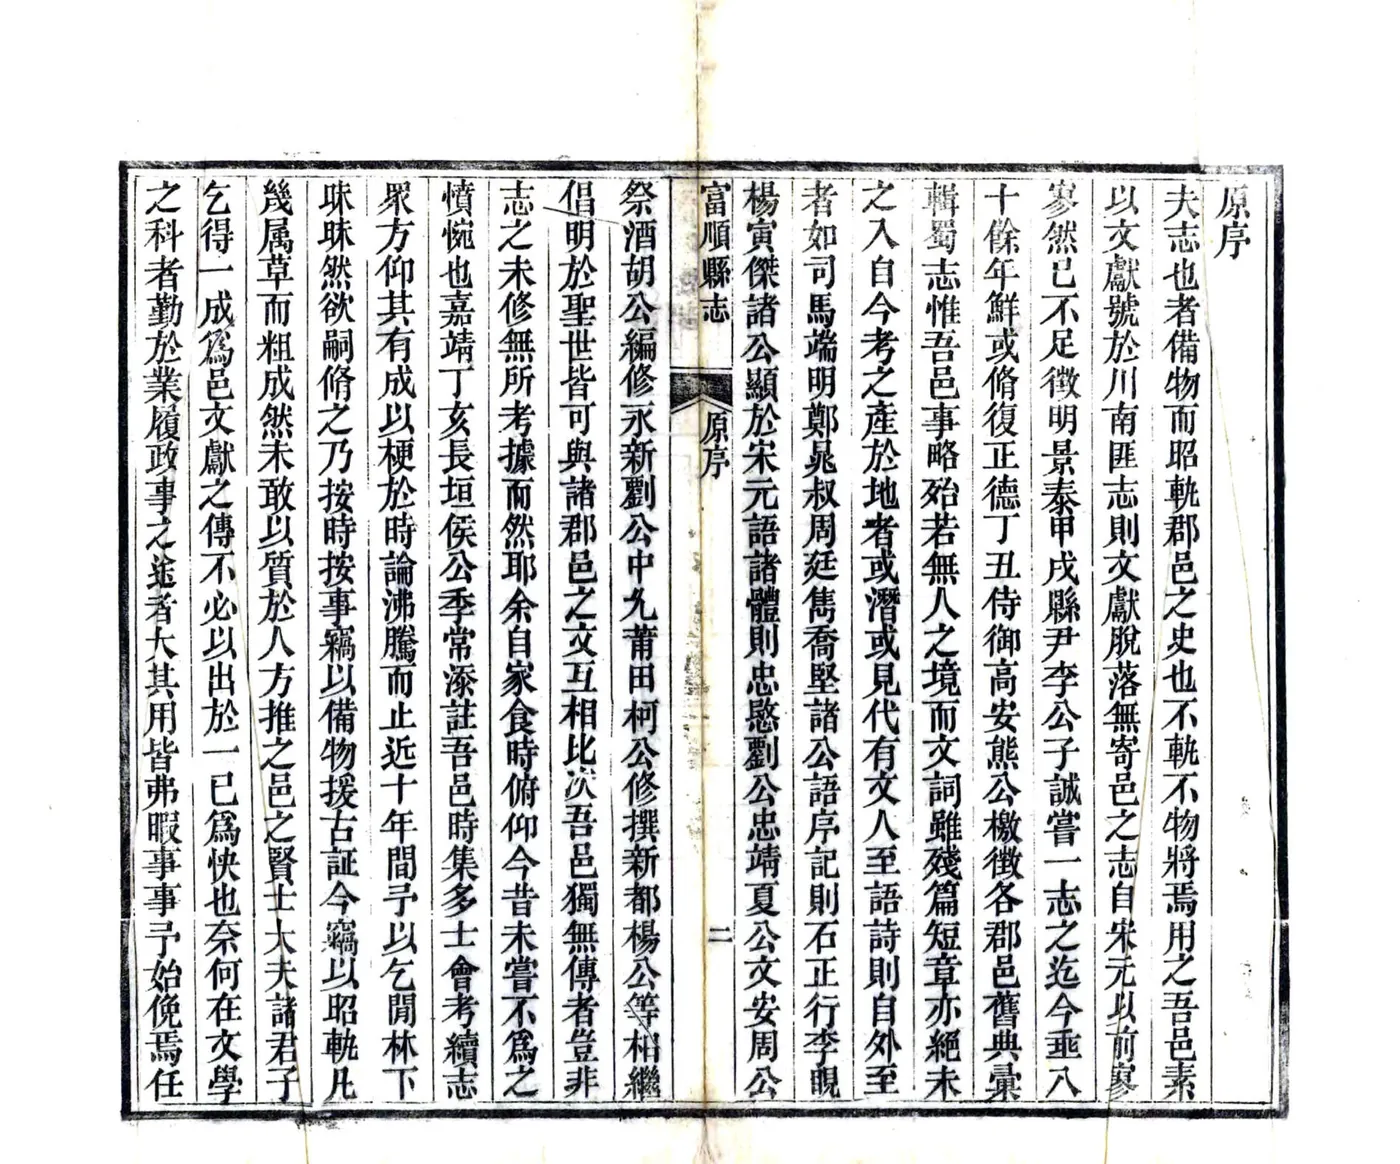 原序
夫志也者備物而昭軌郡邑之史也不軌不物將焉用之吾邑素
以文獻號於川南匪志則文獻脫落無寄邑之志自宋元以前寥
寥然已不足徵明景泰甲戌縣尹李公子誠嘗一志之迄今垂八
十餘年鮮或脩復正德丁丑侍御高安熊公檄徵各郡邑舊典彙
輯蜀志惟吾邑事略殆若無人之境而文詞雖殘篇短章亦絕未
之入自今考之產於地者或潛或見代有文人至語詩則自外至
者如司馬端明鄭晁叔周廷雋喬堅諸公語序記則石正行李睍
楊寅傑諸公顯於宋元語諸體則忠愍劉公忠靖夏公文安周公
富順縣志
原序
二
祭酒胡公編修永新劉公中允莆田柯公修撰新都楊公等相繼
倡明於聖世皆可與諸郡邑之文互相比次吾邑獨無傳者豈非
志之未修無所考據而然耶余自家食時俯仰今昔未嘗不為之
憤惋也嘉靖丁亥長垣侯公季常添註吾邑時集多士會考續志
眾方仰其有成以梗於時論沸騰而止近十年間予以乞閒林下
昧昧然欲嗣脩之乃按時按事竊以備物援古証今竊以昭軌凡
幾属草而粗成然未敢以質於人方推之邑之賢士大夫諸君子
乞得一成爲邑文獻之傳不必以出於一已爲快也奈何在文學
之科者勤於業履政事之途者大其用皆弗暇事事予始俛焉任